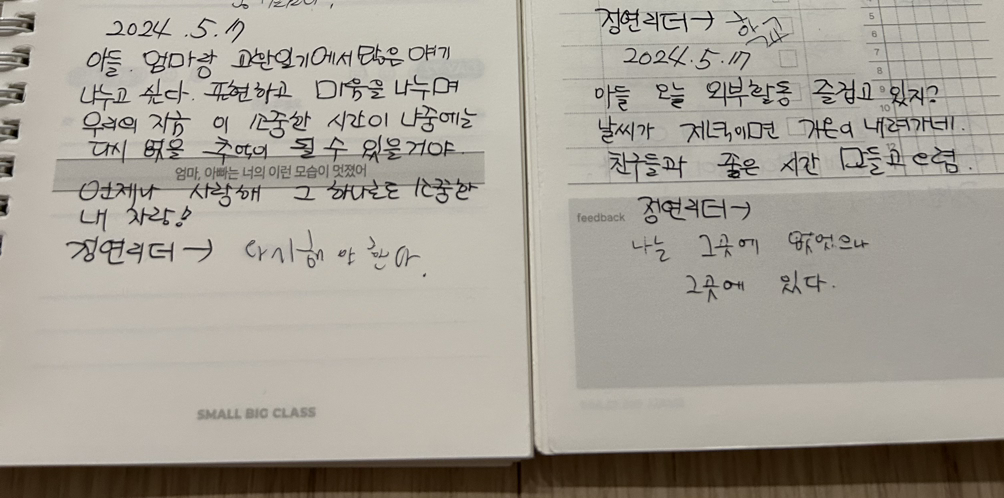 2024.5.17
아들. 엄마랑 교환일기에서 많은 얘기
나누고 싶다. 표현하고 마음을 나누며
우리의 지금 이 소중한 시간이 나중에는
다시 없을 추억이 될 수 있을거야.
엄마, 아빠는 너의 이런 모습이 멋졌어
언제나 사랑해 그 하나로도 소중한
내 자랑!
정연리더→ 다시해야 한다.
SMALL BIG CLASS
정연리더→
2024.5.17
아들 오늘 외부활동 즐겁고 있지?
날씨가 저녁이면 기온이 내려가네.
친구들과 좋은 시간 만들고 오렴.
5
6
7
8
9
10
feedback
정연리더→
나는 그곳에 없었으나
그곳에 있다.